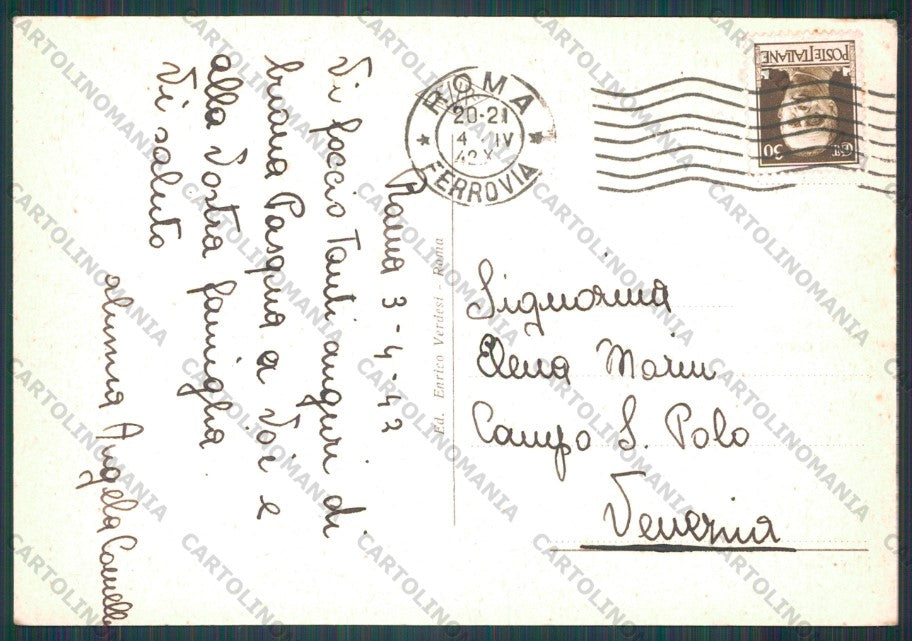 Roma 3-4-42
Vi faccio Tanti auguri di
buona Pasqua a Voi e
alla Vostra famiglia.
Vi saluto
alunna Angela
ROMA
FERROVIA
20-21
4 IV
42 X
POSTE ITALIANE
CENT. 30
Ed. Enrico Verdesi - Roma
Signorina
Elena Morin
Campo S. Polo
Venezia
CARTOLINOMANIA